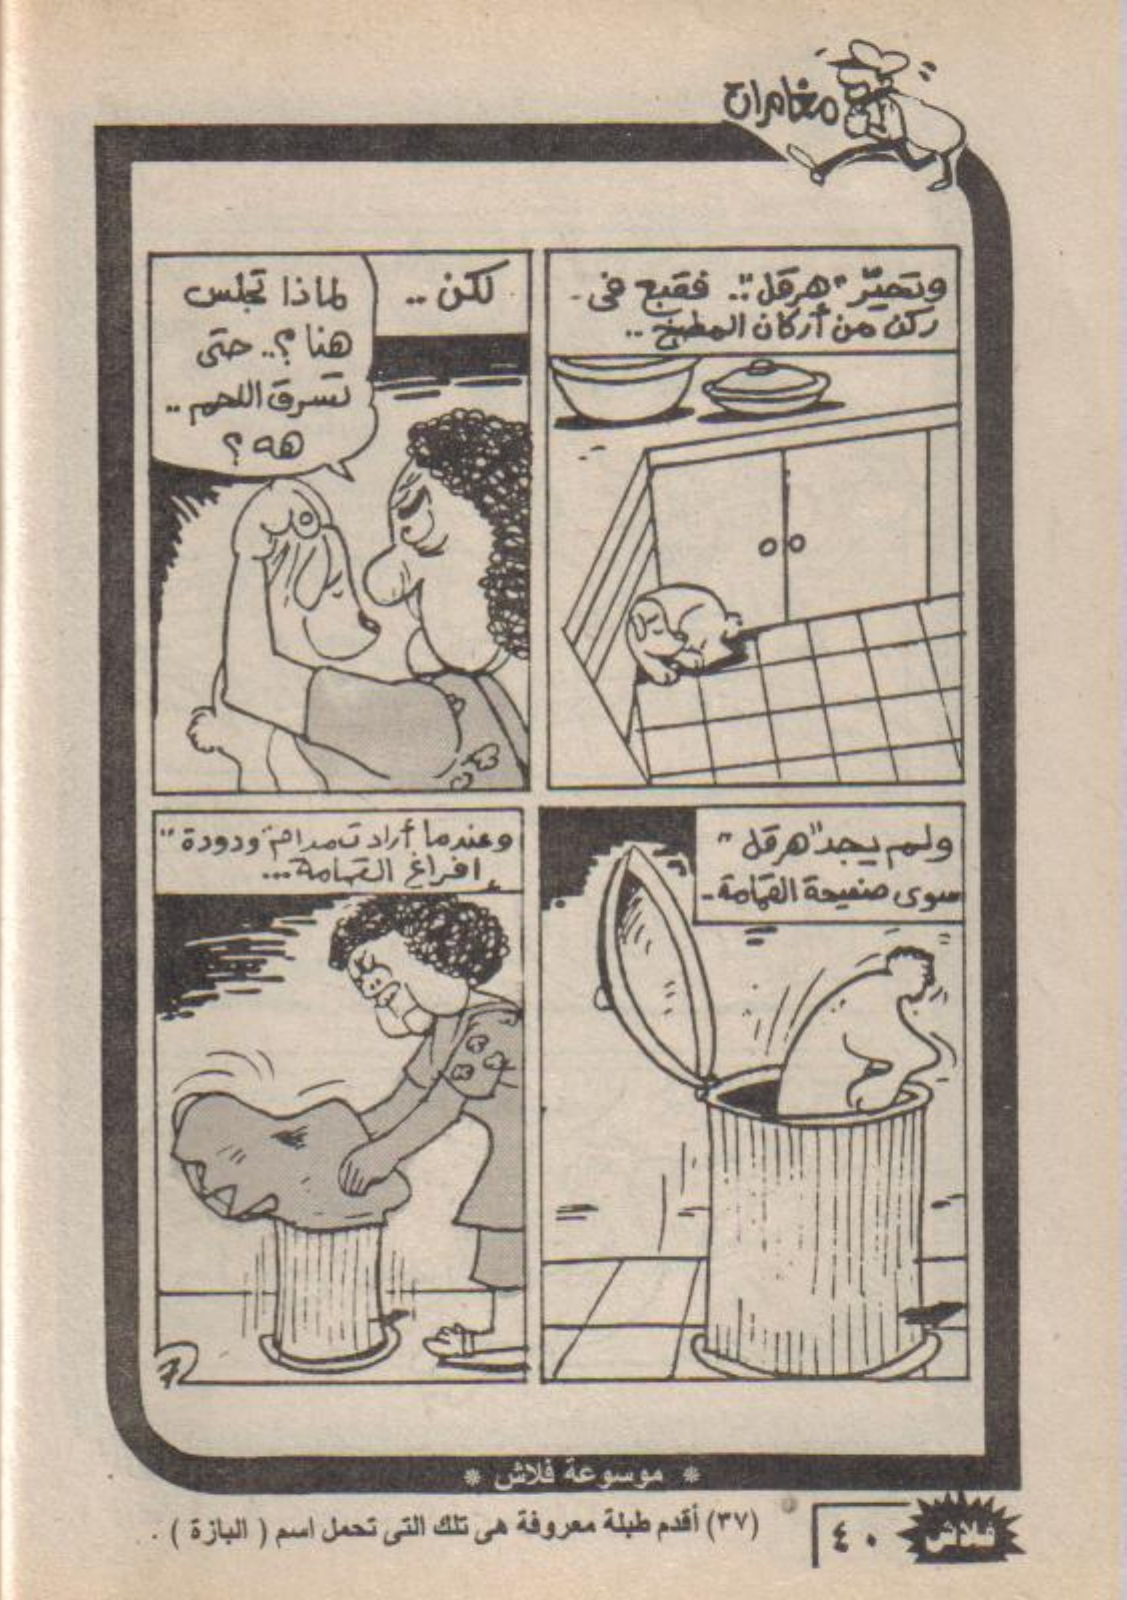 مغامرات
وتحيّر "هرقل".. فقبع فى -
ركن من أركان المطبخ ..
لكن ..
لماذا تجلس
هنا ؟.. حتى
تسرق اللحم ..
هه ؟
ولم يجد "هرقل"
سوى صفيحة القمامة -
وعندما أرادت مدام "ودودة"
إفراغ القمامة...
* موسوعة فلاش *
(٣٧) أقدم طبلة معروفة هى تلك التى تحمل اسم ( البازة ) .
٤٠
فلاش